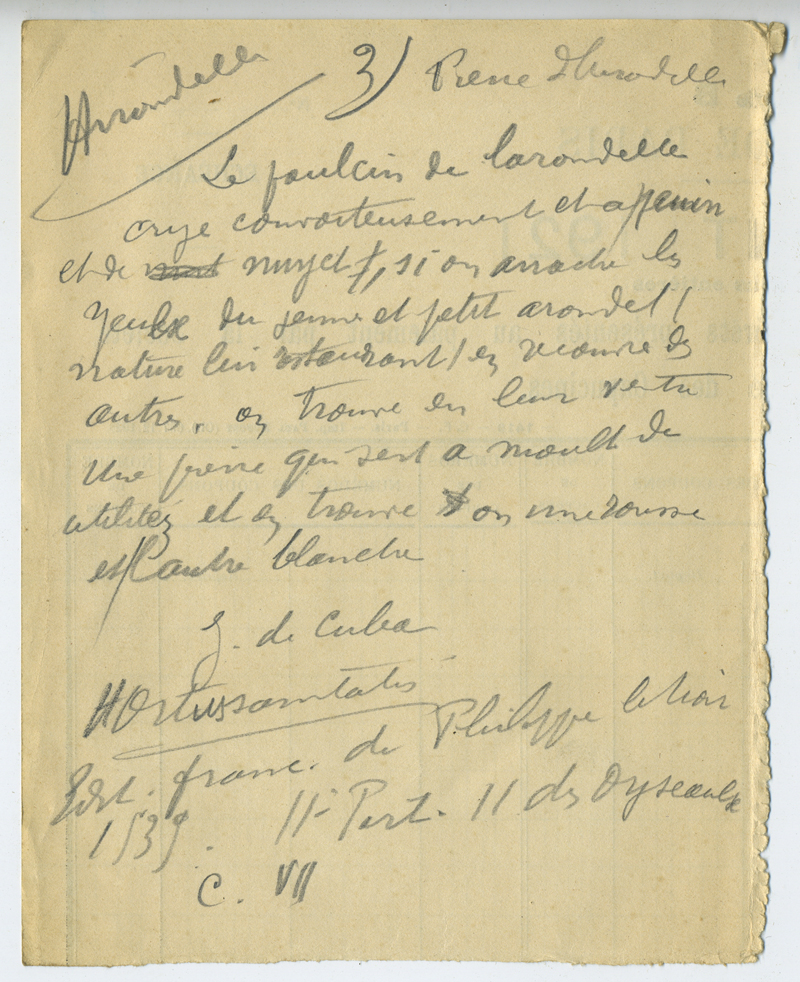 Arrondelle 3) Pierre d'hirondelle
Le poulcin de larondelle
crye convoiteusement et a
et de nuyct, si on arrache les
yeulx du jeune et petit arondel /
nature lui restaurant / en recouvre des
autres. on trouve en leur ventre
une pierre qui sert a moult de
utilitez et en trouve on une rousse
et l'autre blanche
J. de Cuba
Hortus sanitatis
Edit. franc. de Philippe le Noir
1539. IIe Part. II des Oyseaulx
C. VII